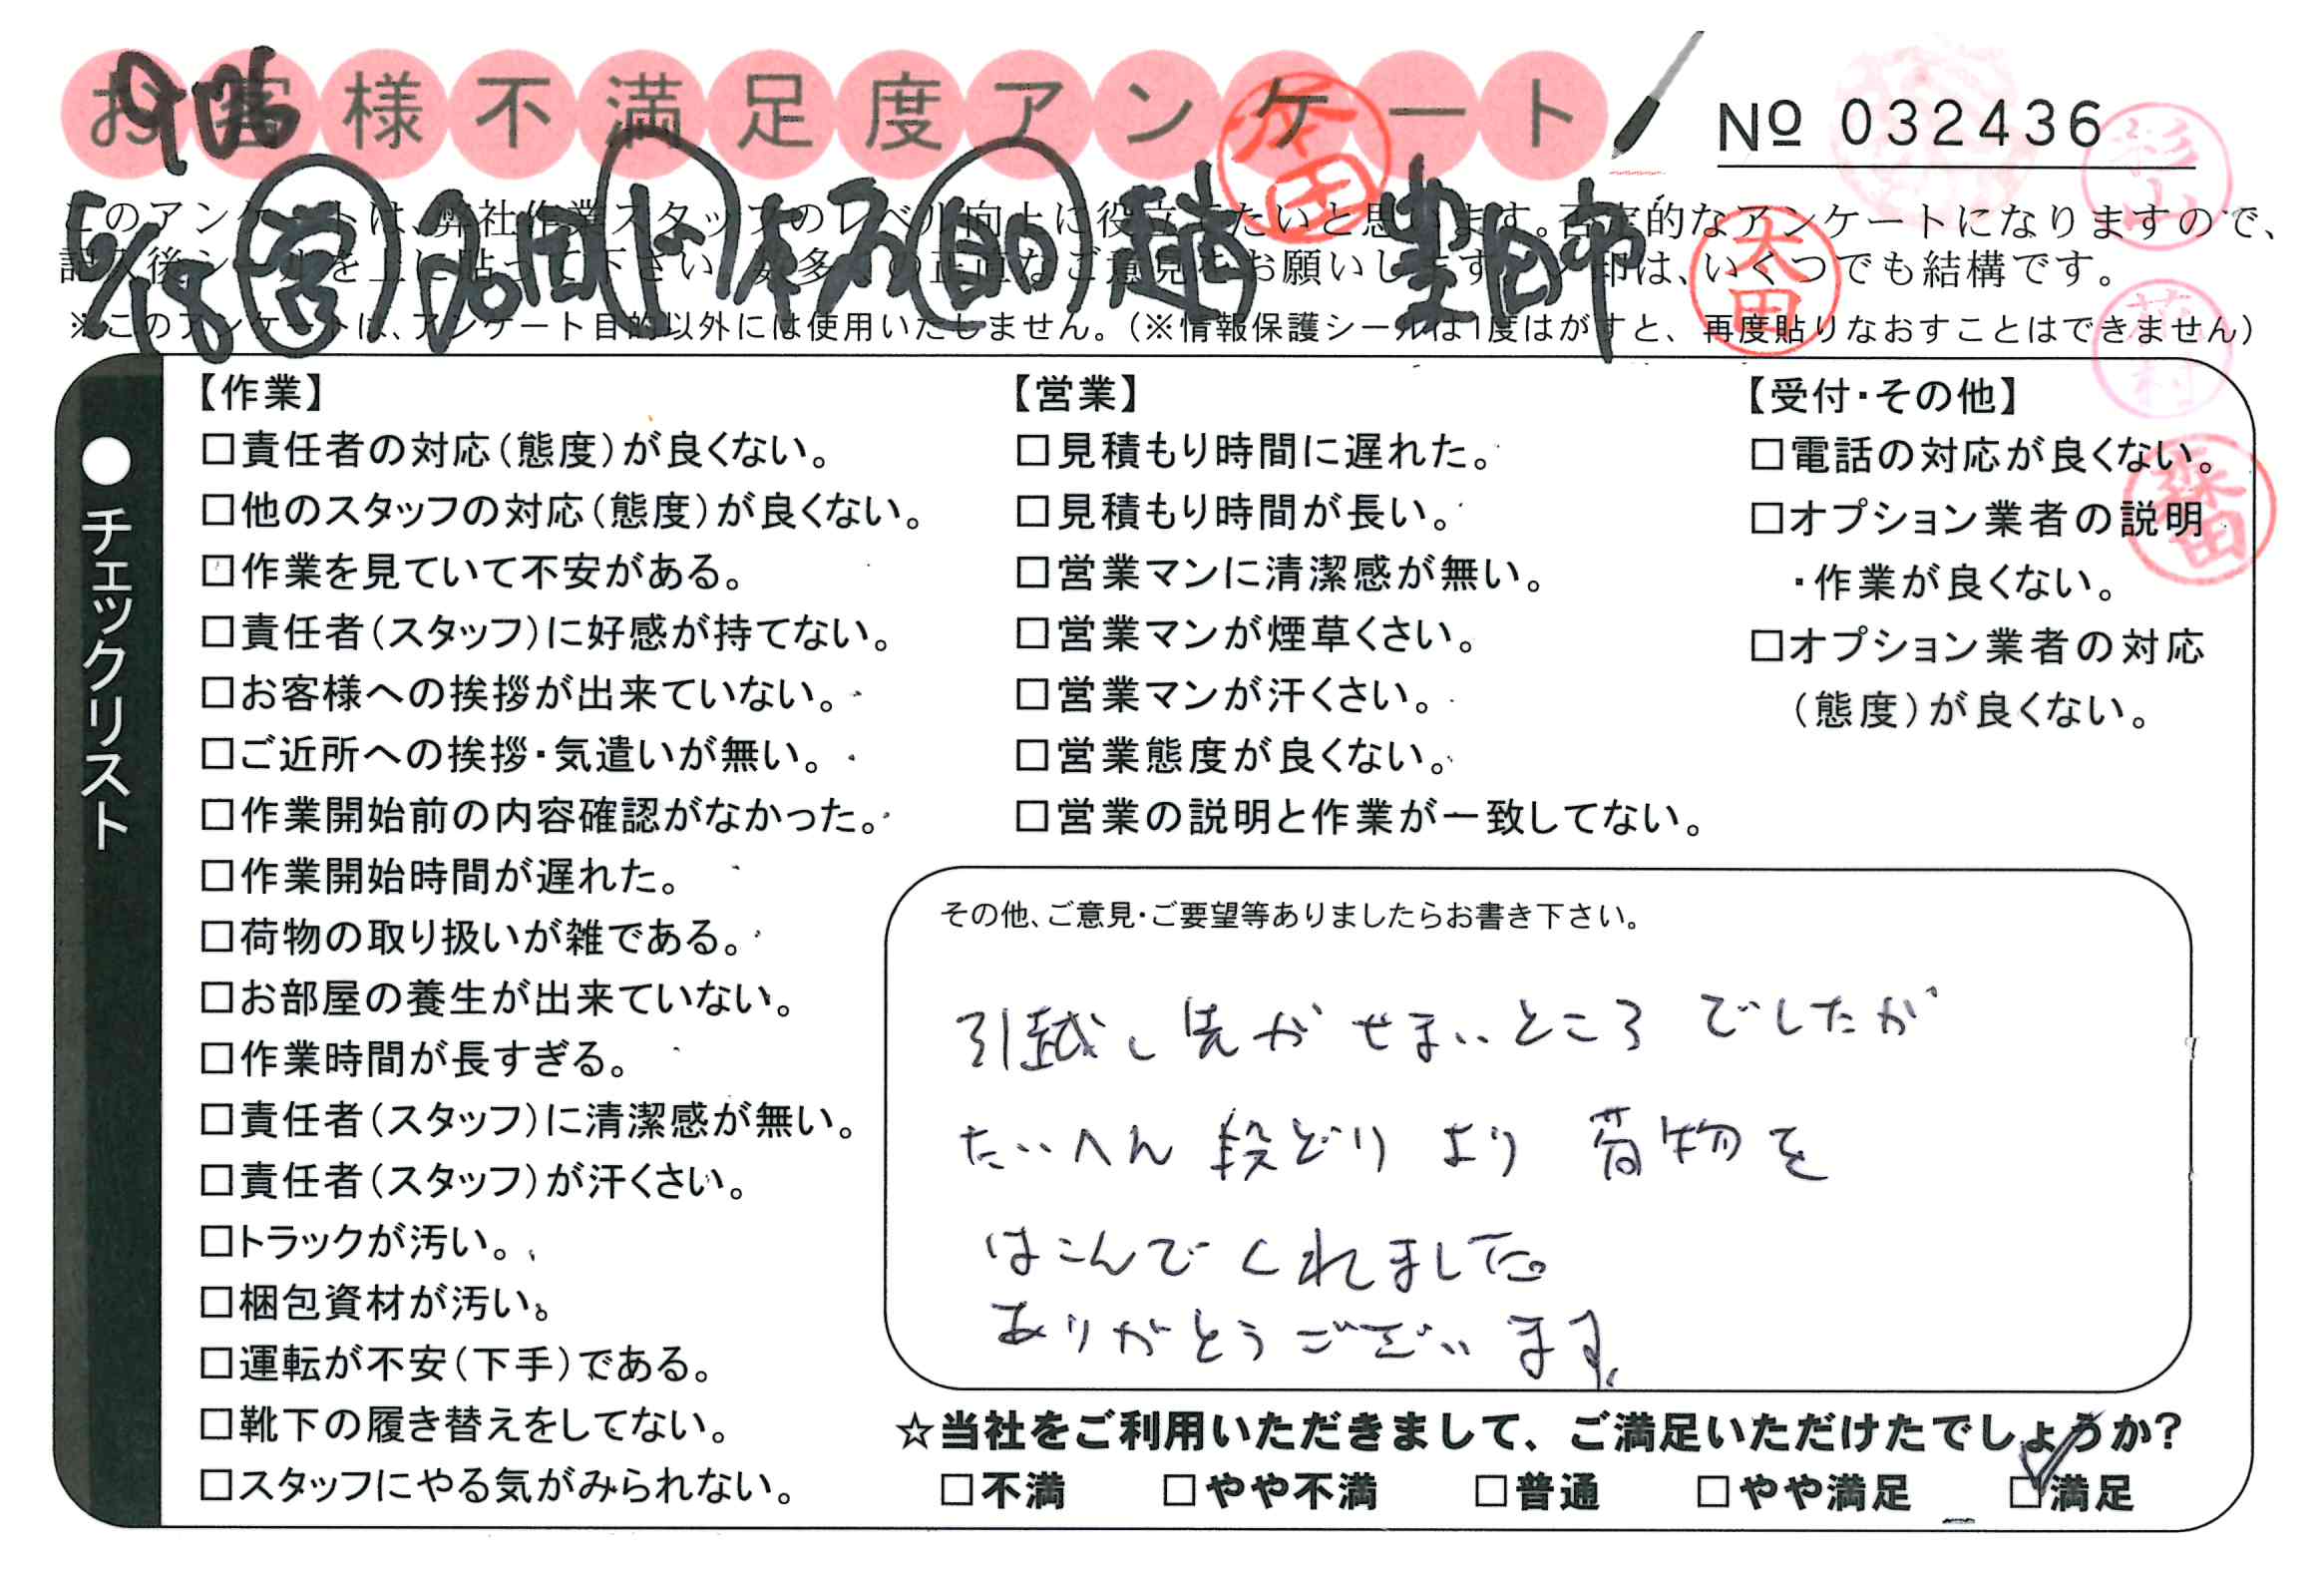 お客様不満足度アンケート
№ 032436
906
6/18 営 ド 助
本田
杉山
太田
森田
このアンケートは、弊社作業スタッフのレベル向上に役立てたいと思います。否定的なアンケートになりますので、
※このアンケートは、アンケート目的以外には使用いたしません。(※情報保護シールは1度はがすと、再度貼りなおすことはできません)
●チェックリスト
【作業】
□責任者の対応(態度)が良くない。
□他のスタッフの対応(態度)が良くない。
□作業を見ていて不安がある。
□責任者(スタッフ)に好感が持てない。
□お客様への挨拶が出来ていない。
□ご近所への挨拶・気遣いが無い。
□作業開始前の内容確認がなかった。
□作業開始時間が遅れた。
□荷物の取り扱いが雑である。
□お部屋の養生が出来ていない。
□作業時間が長すぎる。
□責任者(スタッフ)に清潔感が無い。
□責任者(スタッフ)が汗くさい。
□トラックが汚い。
□梱包資材が汚い。
□運転が不安(下手)である。
□靴下の履き替えをしてない。
□スタッフにやる気がみられない。
【営業】
□見積もり時間に遅れた。
□見積もり時間が長い。
□営業マンに清潔感が無い。
□営業マンが煙草くさい。
□営業マンが汗くさい。
□営業態度が良くない。
□営業の説明と作業が一致してない。
【受付・その他】
□電話の対応が良くない。
□オプション業者の説明
・作業が良くない。
□オプション業者の対応
(態度)が良くない。
その他、ご意見・ご要望等ありましたらお書き下さい。
引越し先がせまいところでしたが
たいへん段どりより荷物を
はこんでくれました。
ありがとうございます。
☆当社をご利用いただきまして、ご満足いただけたでしょうか?
□不満 □やや不満 □普通 □やや満足 ☑満足